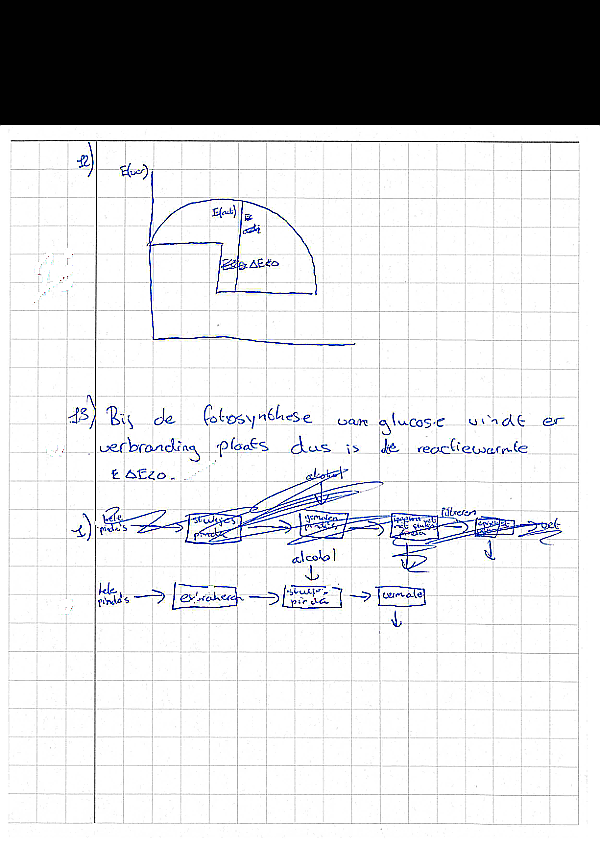 12)
E(act)
ΔE<0
13) Bij de fotosynthese van glucose vindt er
verbranding plaats dus is de reactiewarmte
ΔE<0.
alcohol
filtreren
1) hele pinda's stukjes pinda gemalen pinda vet
alcohol
hele pinda's extraheren stukjes pinda vermalen